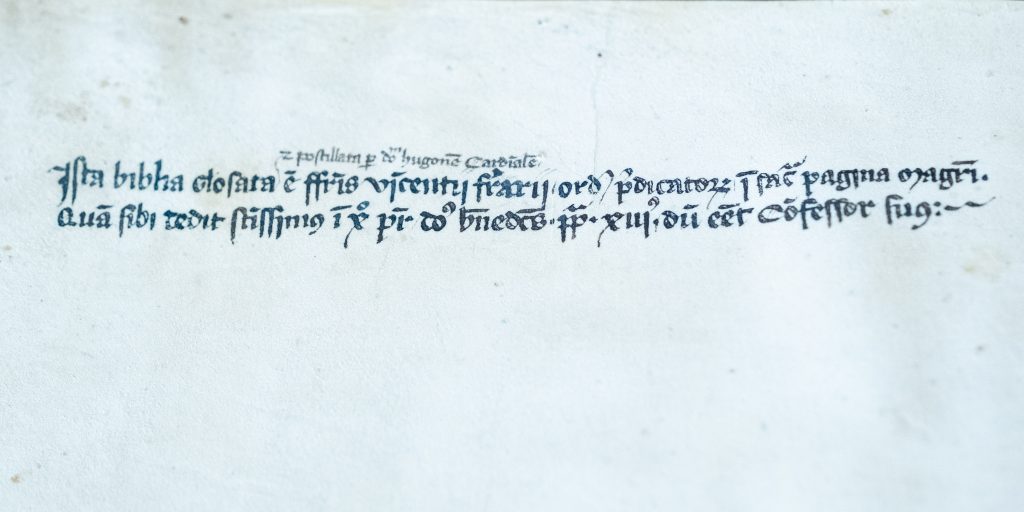 ⁊ postillata ꝑ dⁿᵐ hugonē Cardīalē
Ista biblia glosata ē ffrīs vīcentij frrarij · ordis p̄dicatorꝝ ī sac̄ pagina magrī.
Quā sibi dedit sctīssimꝰ ī xº pr̄ doⁿꝰ bn̄edcūs · pp̄ · xiijꝰ · dū eēt Cōfessor suꝰ:~